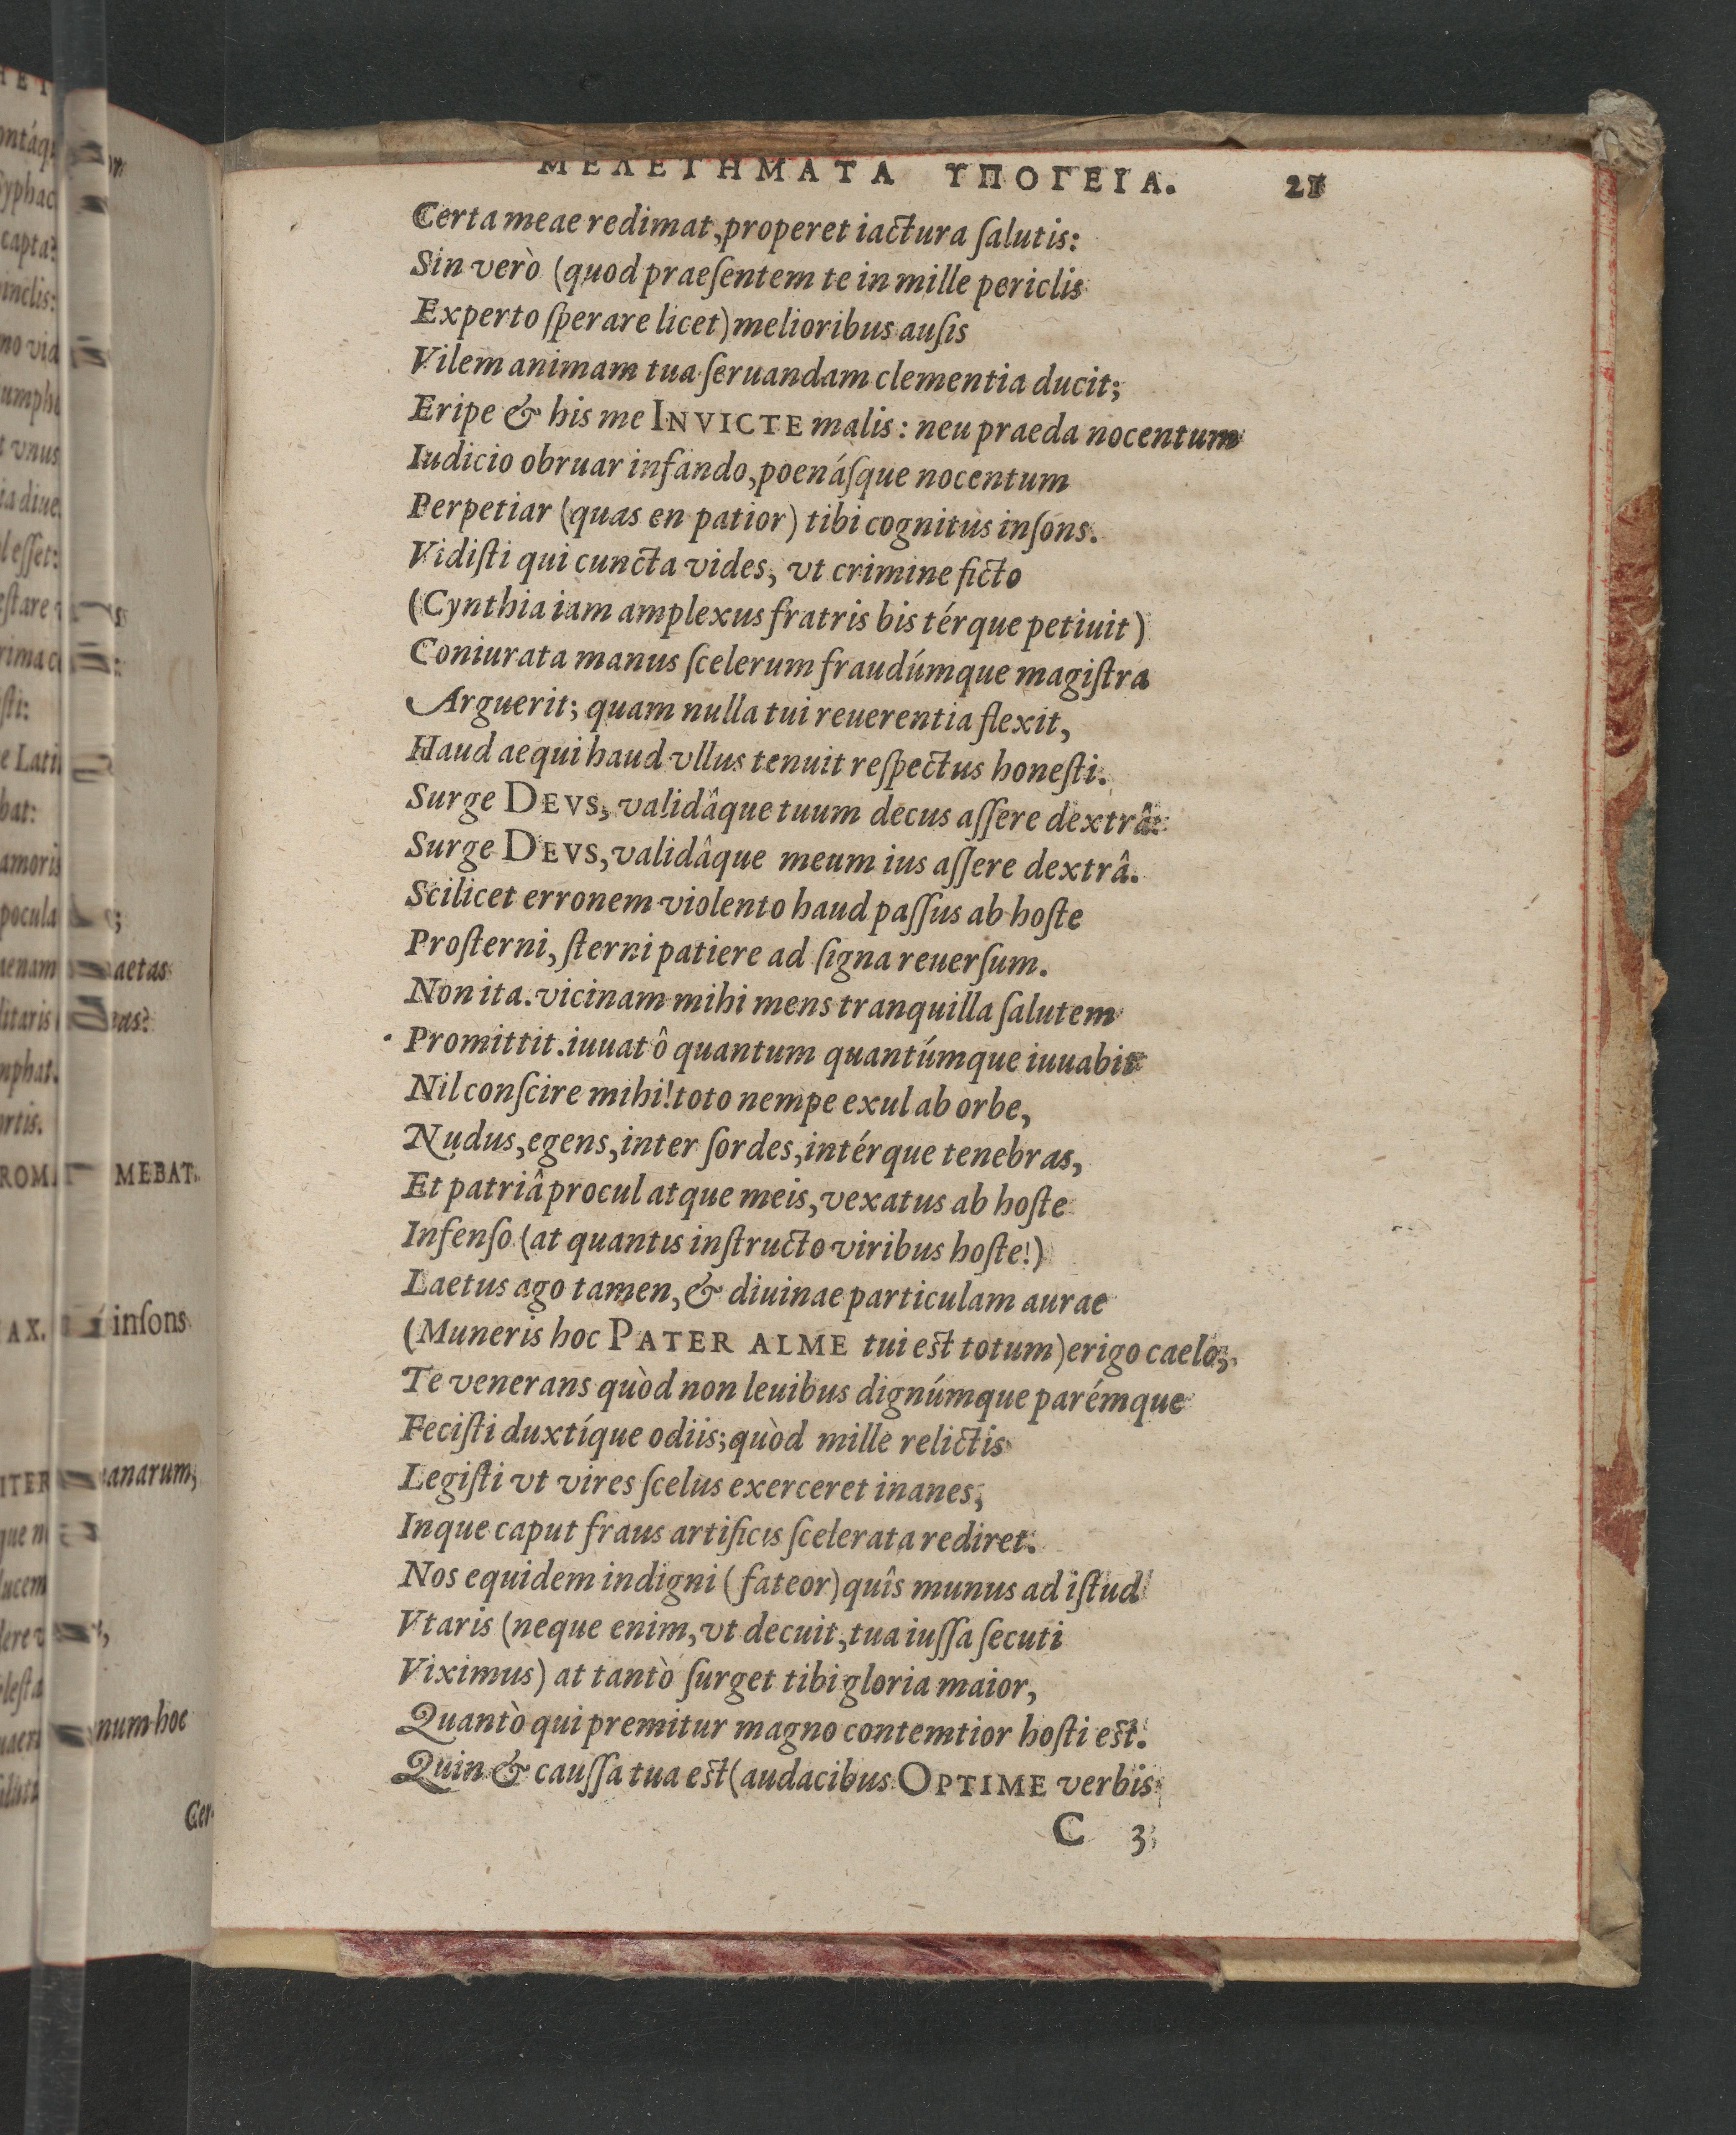 ΜΕΛΕΤΗΜΑΤΑ ΥΠΟΓΕΙΑ. 21
Certa meae redimat, properet iactura ſalutis:
Sin verò (quod praeſentem te in mille periclis
Experto ſperare licet) melioribus auſis
Vilem animam tua ſeruandam clementia ducit;
Eripe & his me INVICTE malis: neu praeda nocentum
Iudicio obruar infando, poenáſque nocentum
Perpetiar (quas en patior) tibi cognitus inſons.
Vidiſti qui cuncta vides, vt crimine ficto
(Cynthia iam amplexus fratris bis térque petiuit)
Coniurata manus ſcelerum fraudúmque magiſtra
Arguerit; quam nulla tui reuerentia flexit,
Haud aequi haud vllus tenuit reſpectus honeſti.
Surge DEVS, validâque tuum decus aſſere dextrâ:
Surge DEVS, validâque meum ius aſſere dextrâ.
Scilicet erronem violento haud paſſus ab hoſte
Proſterni, ſterni patiere ad ſigna reuerſum.
Non ita. vicinam mihi mens tranquilla ſalutem
Promittit. iuuat ô quantum quantúmque iuuabit
Nil conſcire mihi! toto nempe exul ab orbe,
Nudus, egens, inter ſordes, intérque tenebras,
Et patriâ procul atque meis, vexatus ab hoſte
Infenſo (at quantis inſtructo viribus hoſte!)
Laetus ago tamen, & diuinae particulam aurae
(Muneris hoc PATER ALME tui est totum) erigo caelo;
Te venerans quòd non leuibus dignúmque parémque
Feciſti duxtíque odiis; quòd mille relictis
Legiſti vt vires ſcelus exerceret inanes,
Inque caput fraus artificis ſcelerata rediret.
Nos equidem indigni (fateor) quîs munus ad iſtud
Vtaris (neque enim, vt decuit, tua iuſſa ſecuti
Viximus) at tantò ſurget tibi gloria maior,
Quantò qui premitur magno contemtior hoſti est.
Quin & cauſſa tua est (audacibus OPTIME verbis
C 3
aetas
MEBAT
inſons
num hoc
Cer-